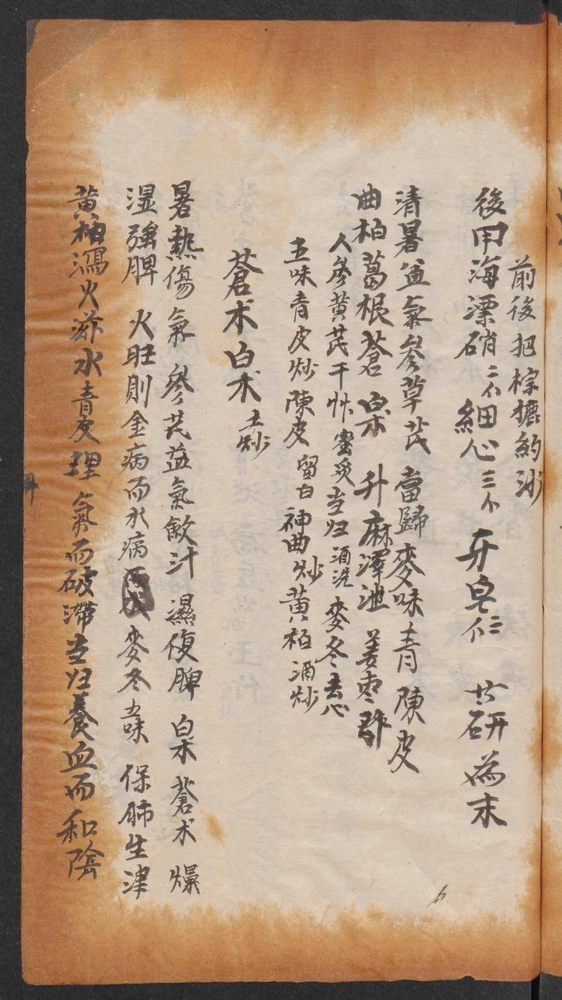 前後把棕攄約沙
後用海漂硝二个細心三个 牙皂仁 共研為末
清暑益氣參草芪 當歸麥味青陳皮
曲柏葛根蒼白朮 升麻澤泄姜枣
人參黃芪干炒蜜炙当归酒洗 麥冬去心
五味青皮炒陳皮留白神曲炒黃柏酒炒
蒼朮白朮土炒
暑熱傷氣參芪益氣歛汗 濕復脾 白朮蒼朮 燥
湿強脾 火旺則金病而水病 麥冬五味 保肺生津
黃柏瀉火滋水青皮理氣而破滯当归養血而和陰